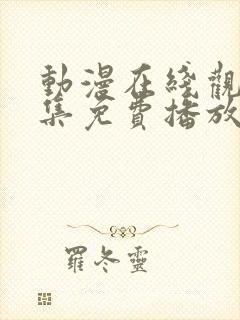 動漫在綫觀
集免費播放
羅冬靈